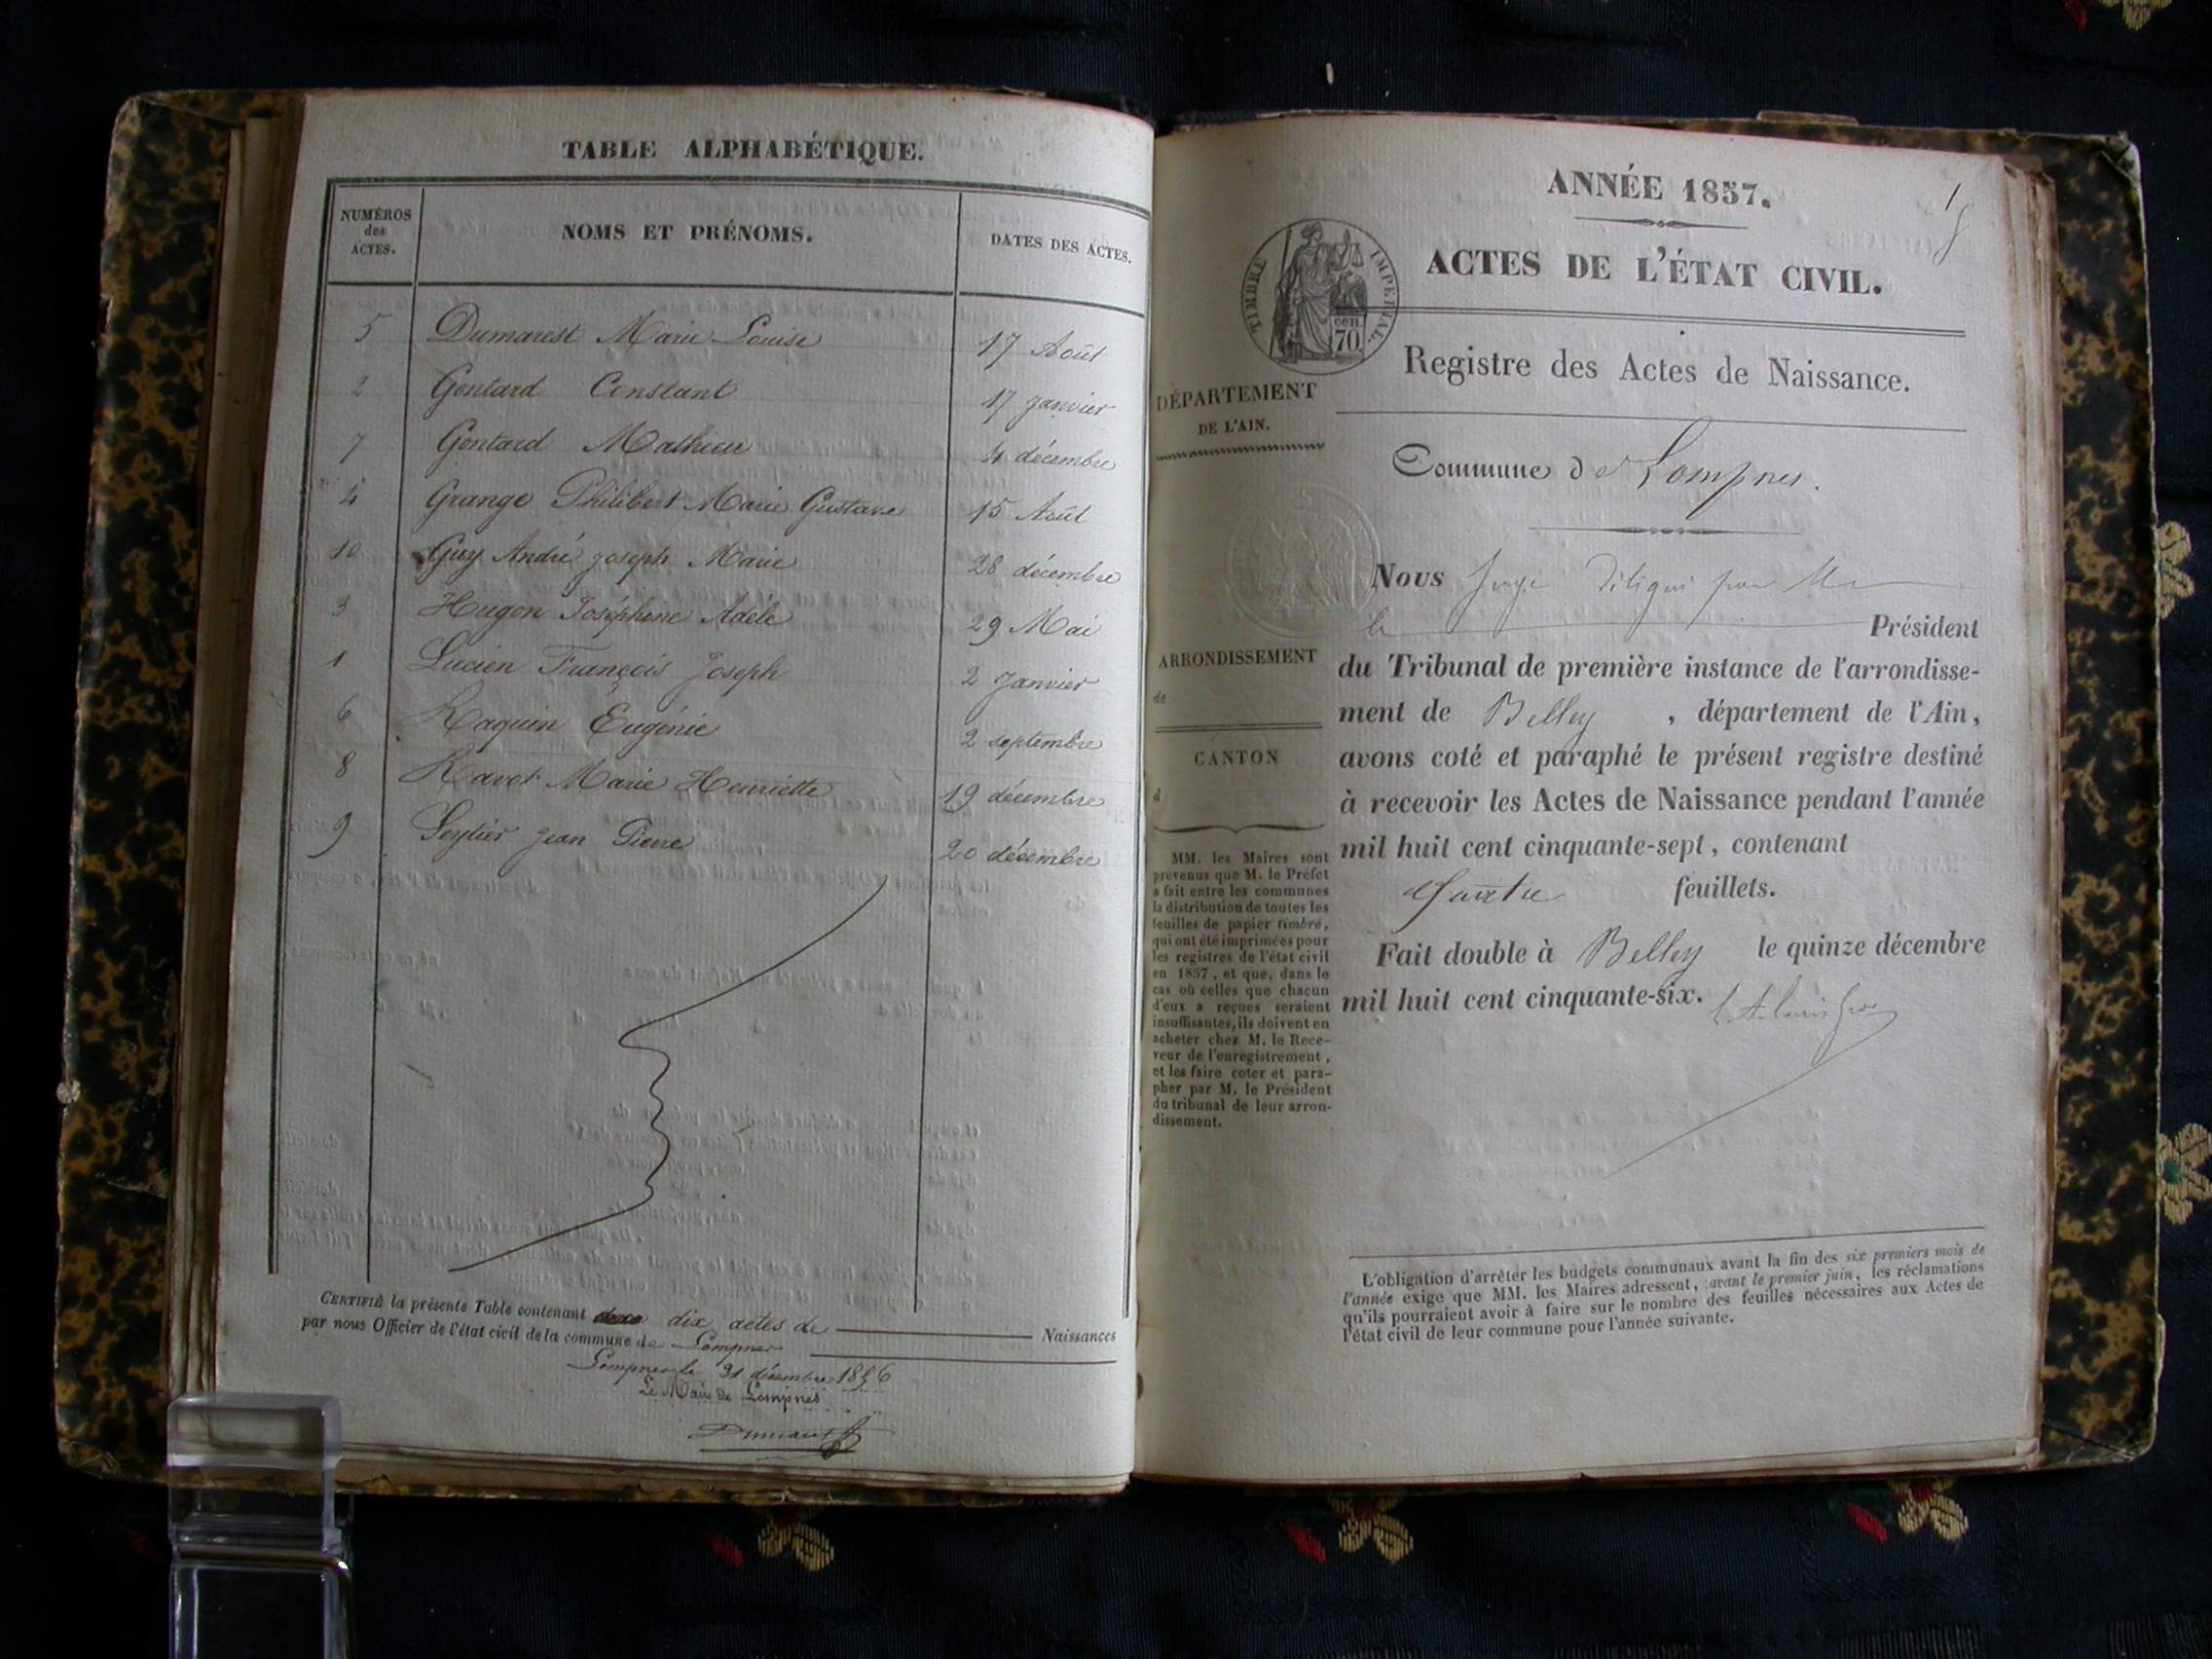 TABLE ALPHABÉTIQUE.
NUMÉROS des ACTES. NOMS ET PRÉNOMS. DATES DES ACTES.
5 Dumarest Marie Louise 17 Août
2 Gontard Constant 17 Janvier
7 Gontard Mathieu 4 décembre
4 Grange Philibert Marie Gustave 15 Août
10 Guy André Joseph Marie 28 décembre
3 Hugon Joséphine Adèle 29 Mai
1 Lucien François Joseph 2 Janvier
6 Raquin Eugénie 2 septembre
8 Ravot Marie Henriette 19 décembre
9 Seytier Jean Pierre 20 décembre
CERTIFIÉ la présente Table contenant dix actes de Naissances
par nous Officier de l'état civil de la commune de Lompnes
Lompnes le 31 décembre 1856
Le Maire de Lompnes
ANNÉE 1857.
1
ACTES DE L'ÉTAT CIVIL.
TIMBRE IMPERIAL.
cen. 70.
Registre des Actes de Naissance.
DÉPARTEMENT
DE L'AIN.
Commune de Lompnes.
Nous Juge délégué par Mr
le Président
ARRONDISSEMENT
de
CANTON
d
du Tribunal de première instance de l'arrondisse-
ment de Belley , département de l'Ain,
avons coté et paraphé le présent registre destiné
à recevoir les Actes de Naissance pendant l'année
mil huit cent cinquante-sept, contenant
feuillets.
Fait double à Belley le quinze décembre
mil huit cent cinquante-six.
MM. les Maires sont
prévenus que M. le Préfet
a fait entre les communes
la distribution de toutes les
feuilles de papier timbré,
qui ont été imprimées pour
les registres de l'état civil
en 1857, et que, dans le
cas où celles que chacun
d'eux a reçues seraient
insuffisantes, ils doivent en
acheter chez M. le Rece-
veur de l'enregistrement,
et les faire coter et para-
pher par M. le Président
du tribunal de leur arron-
dissement.
L'obligation d'arrêter les budgets communaux avant la fin des six premiers mois de
l'année exige que MM. les Maires adressent, avant le premier juin, les réclamations
qu'ils pourraient avoir à faire sur le nombre des feuilles nécessaires aux Actes de
l'état civil de leur commune pour l'année suivante.